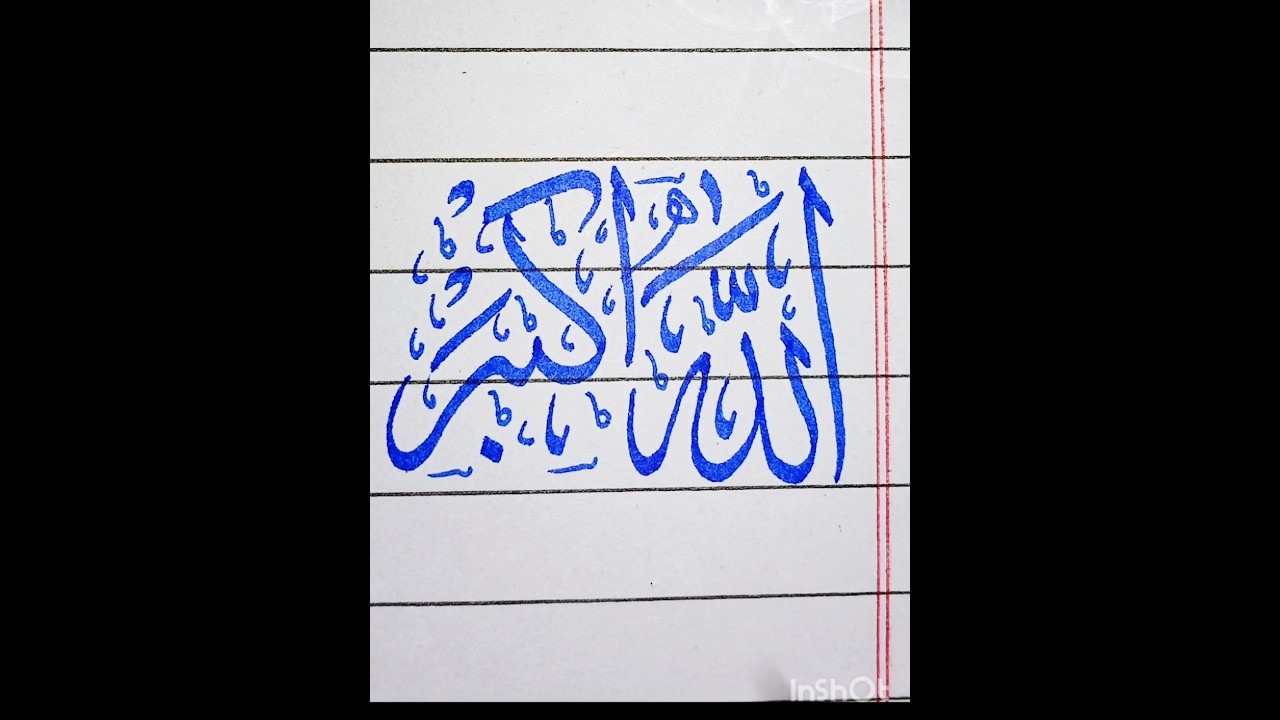 الله اکبر
InShOt